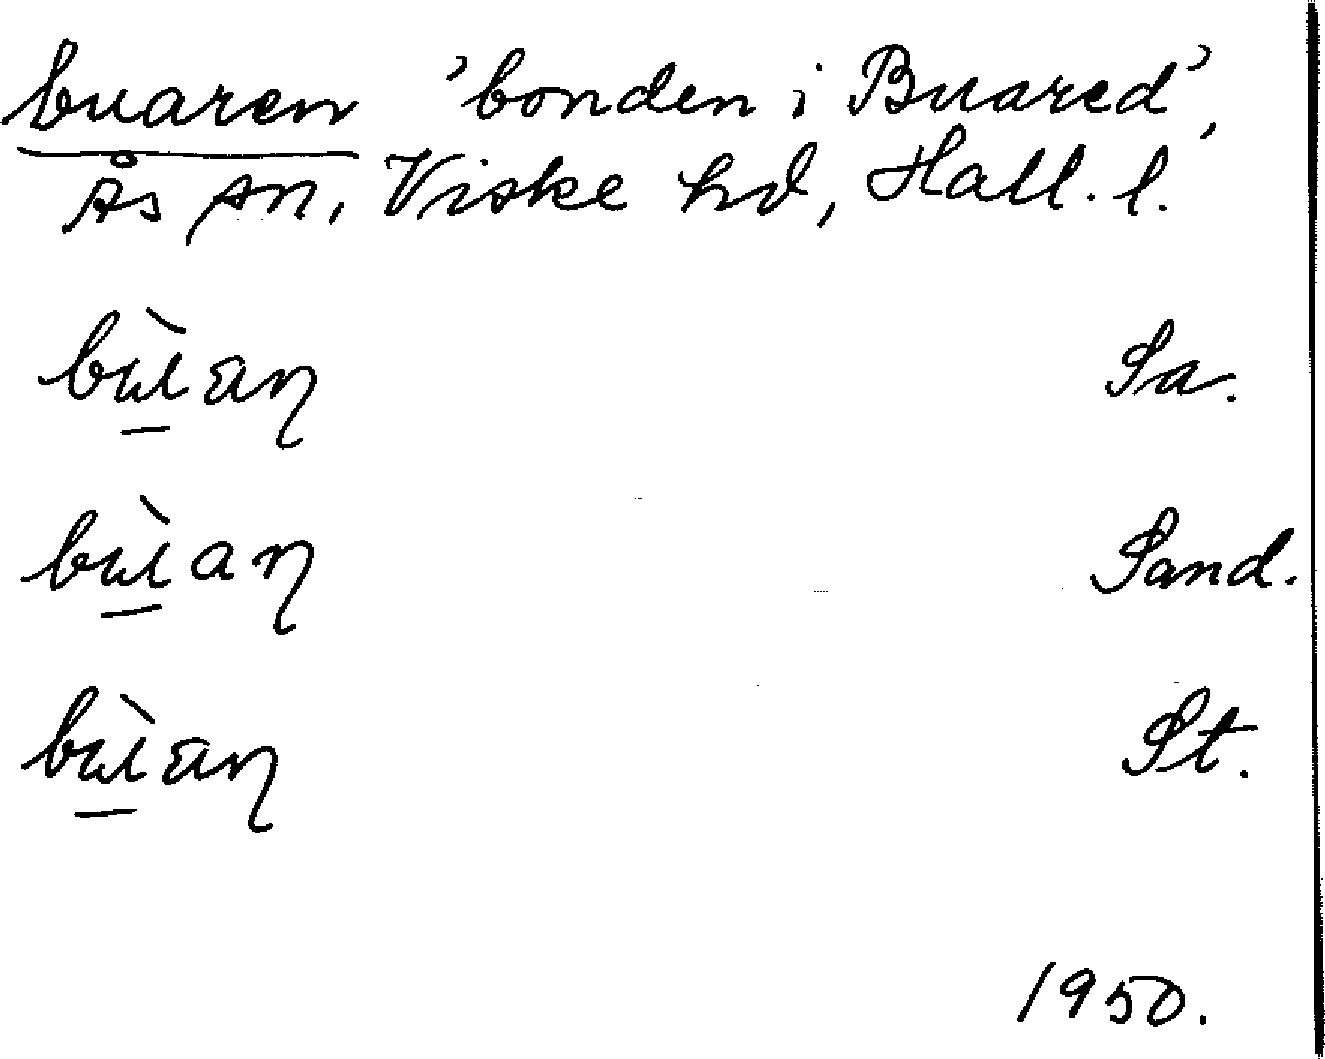 buaren 'bonden i Buared',
Ås sn, Viske hd, Hall. l.
bù̱aŋ Sa.
bù̱aŋ Sand.
bù̱aŋ St.
1950.